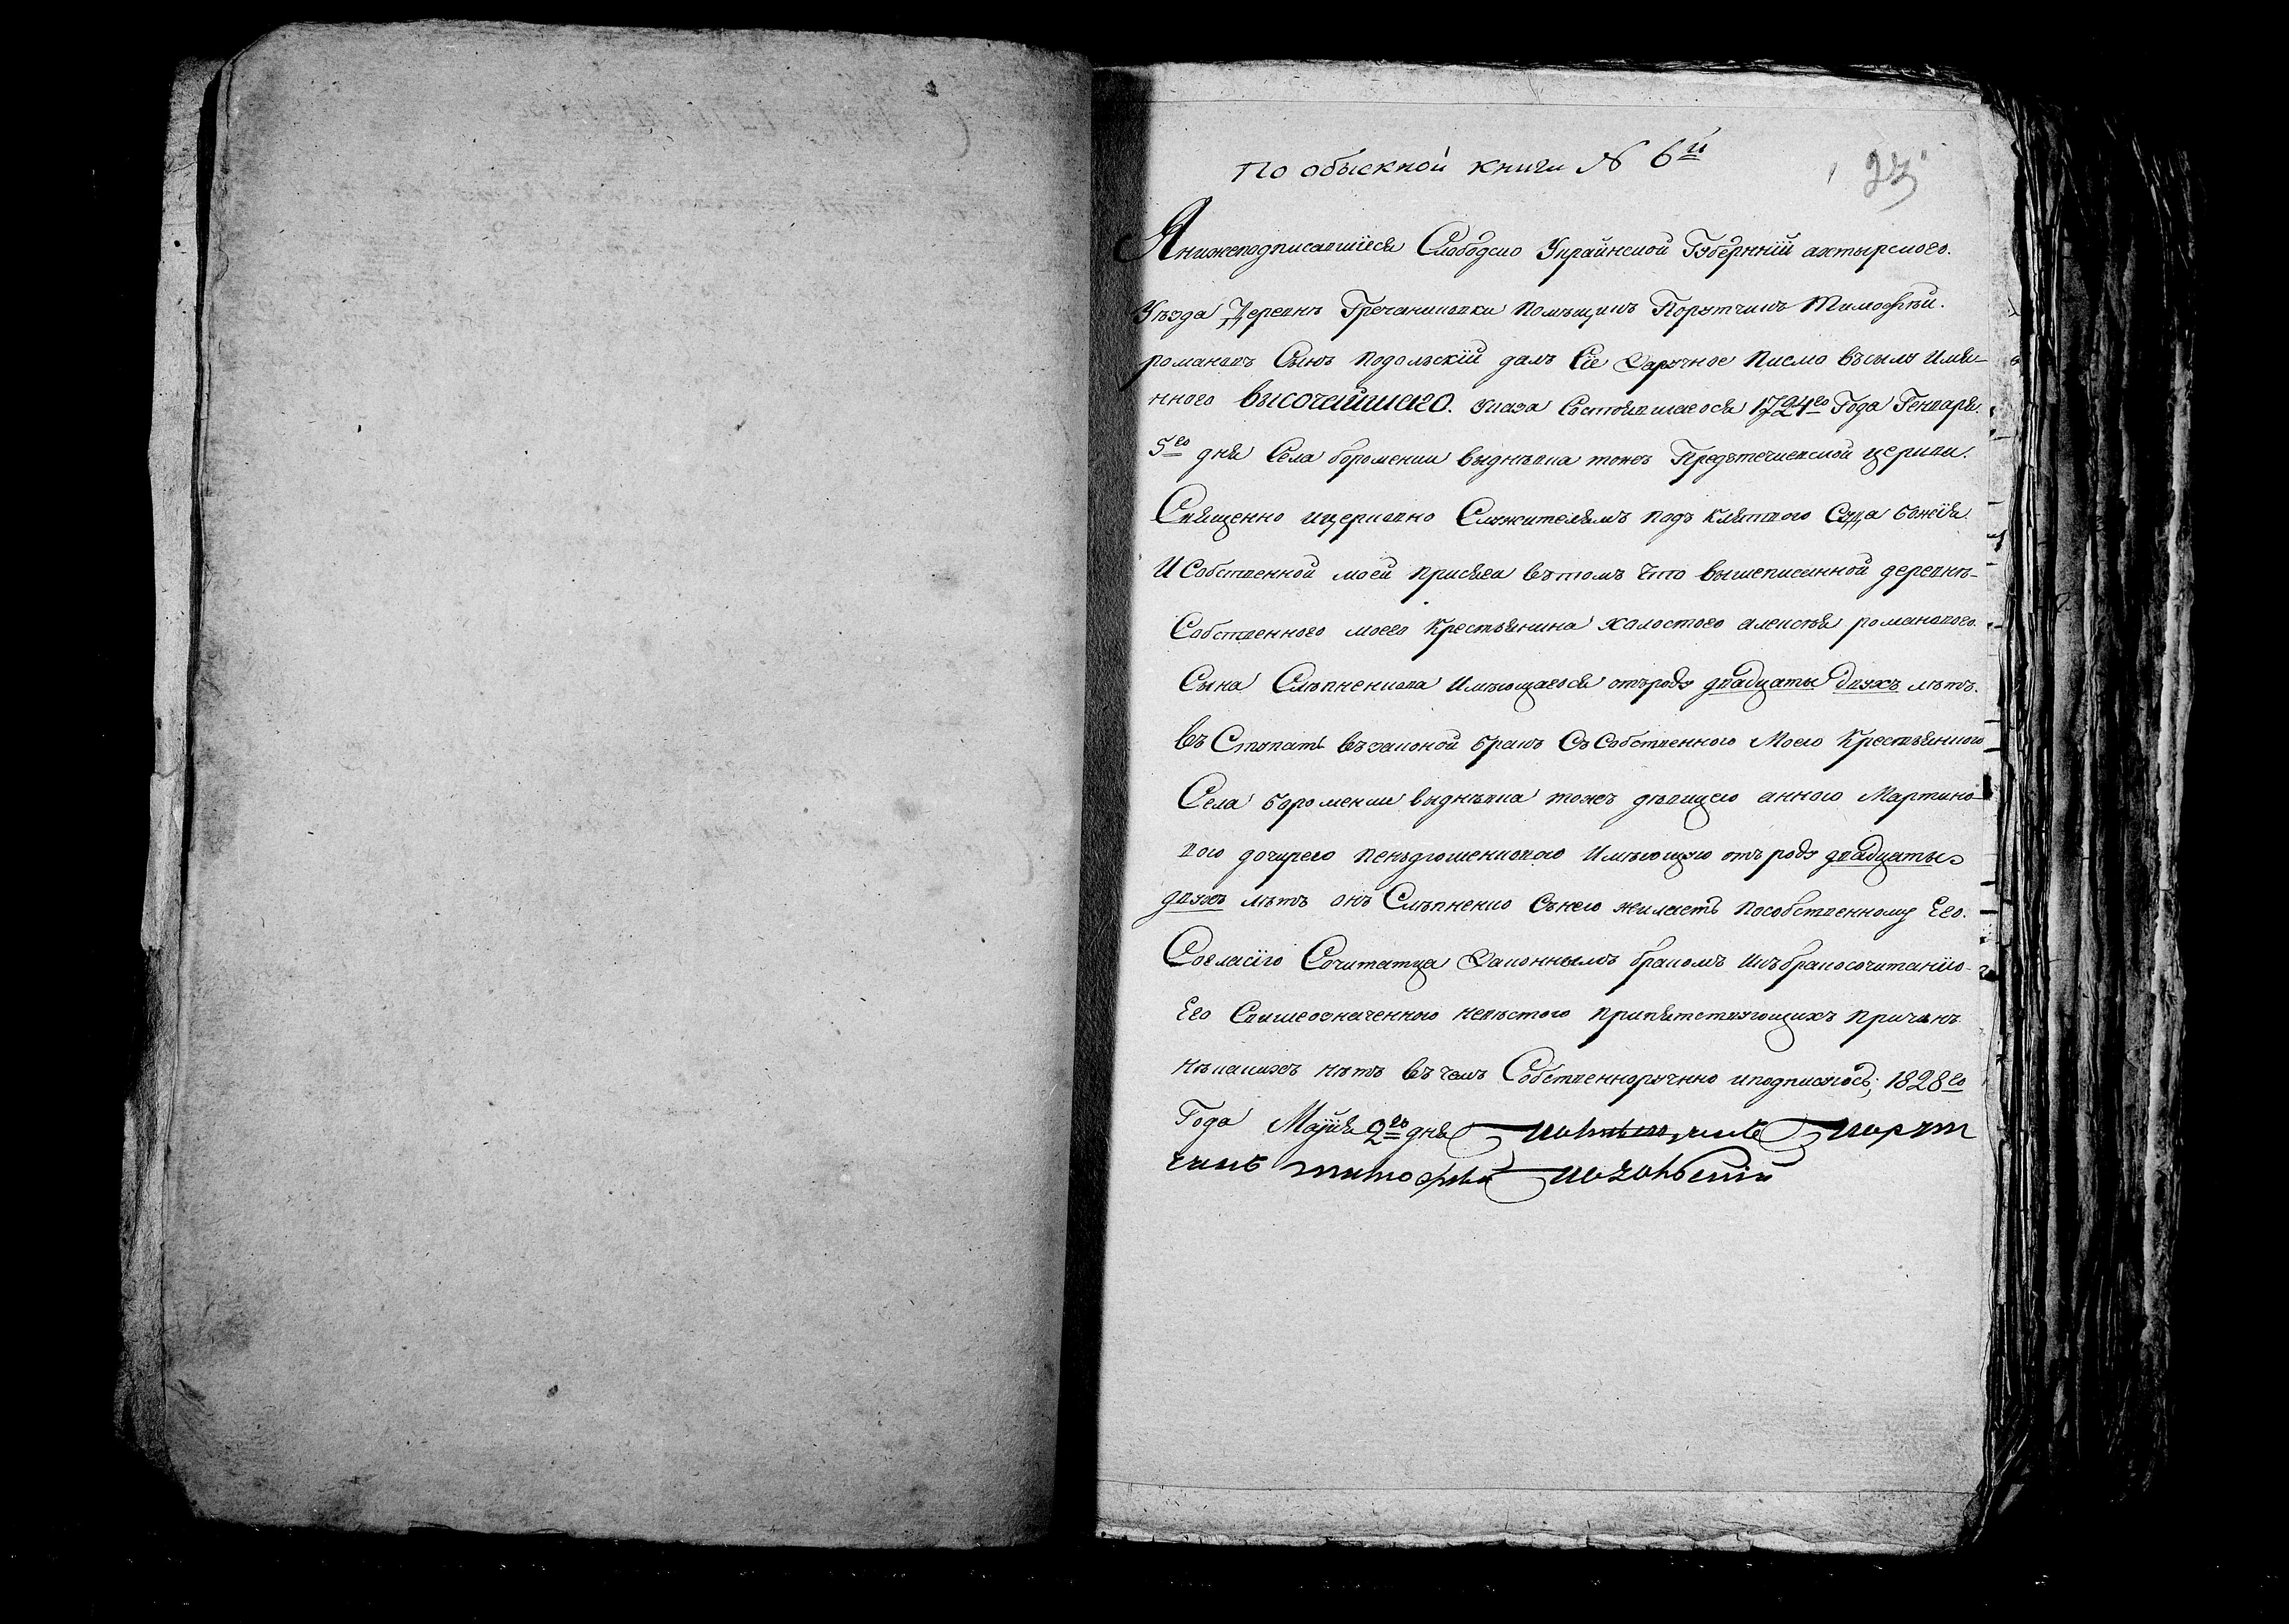 По обыскной книги № 6й
23
Я нижеподписавшїйся Слободско Украинской Губернїи ахтырского.
Уѣзда Деревнѣ Гречаниновки Помѣщикъ Порутчикъ Тимофѣй.
романовъ Сынъ Подольскїй далъ Сїе Заручное Писмо въсилу имян-
ного высочайшаго. указа Состоявшагося 1724го Года Генваря.
5го дня Села боромении выднѣвка тожъ Предътечиевской церкви.
Священно ицерковно Служителямъ подъ клятвою Суда божїя.
И Собственной моей присяга въ томъ что вышеписанной деревнѣ-
Собственного моего Крестьянина холостого алексѣя романового.
Сына Слѣпненкова имѣющагося отъроду двадцаты двухъ лѣтъ.
въ Ступать въ законой бракъ Съ Собственною Моею Крестьянкою
Села боромении выднѣвка тожъ дѣвицею анною Мартино-
вою дочирею Имѣющую отъ роду двадцаты
двухъ лѣтъ онъ Слѣпненко Съ нею жилаетъ Пособственному Его.
Согласїю Сочитатца Законнымъ бракомъ икъ бракосочитанїю-
Его Свышеозначенною невѣстою припятствующихъ причинъ
нѣкакихъ нѣтъ въ чемъ Собственноручно иподписуюсь; 1828го
Года Маїя 2го дня помѣщикъ порут
чикъ тимофѣй подольскїй